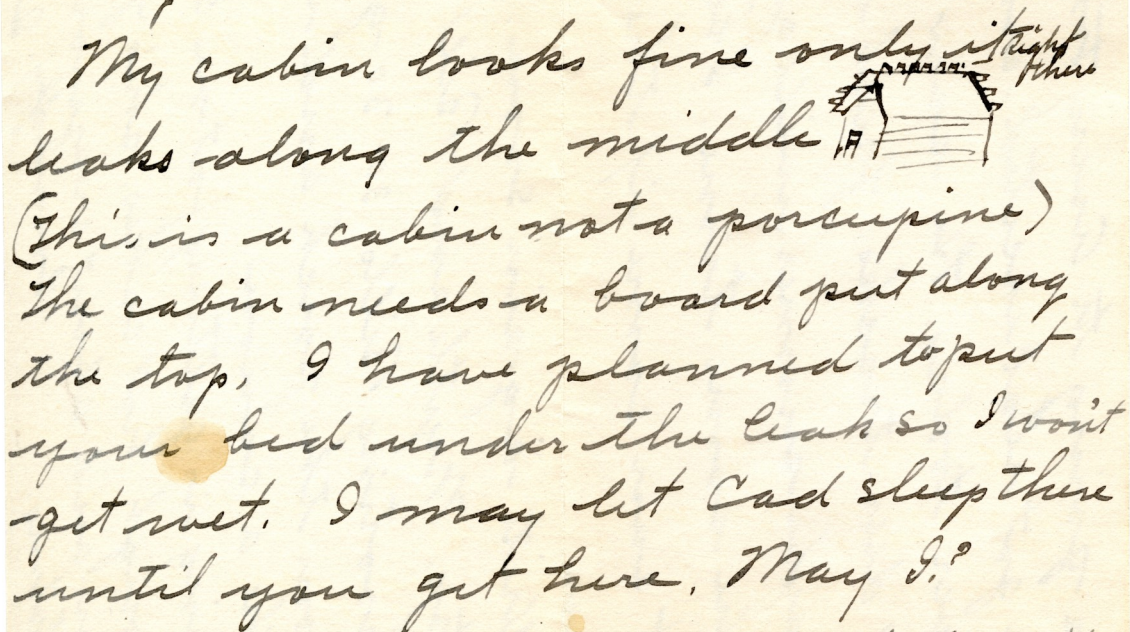 My cabin looks fine only it
right
there
leaks along the middle
(This is a cabin not a porcupine)
The cabin needs a board put along
the top. I have planned to put
your bed under the leak so I won't
get wet. I may let Cad sleep there
until you get here. May I.?